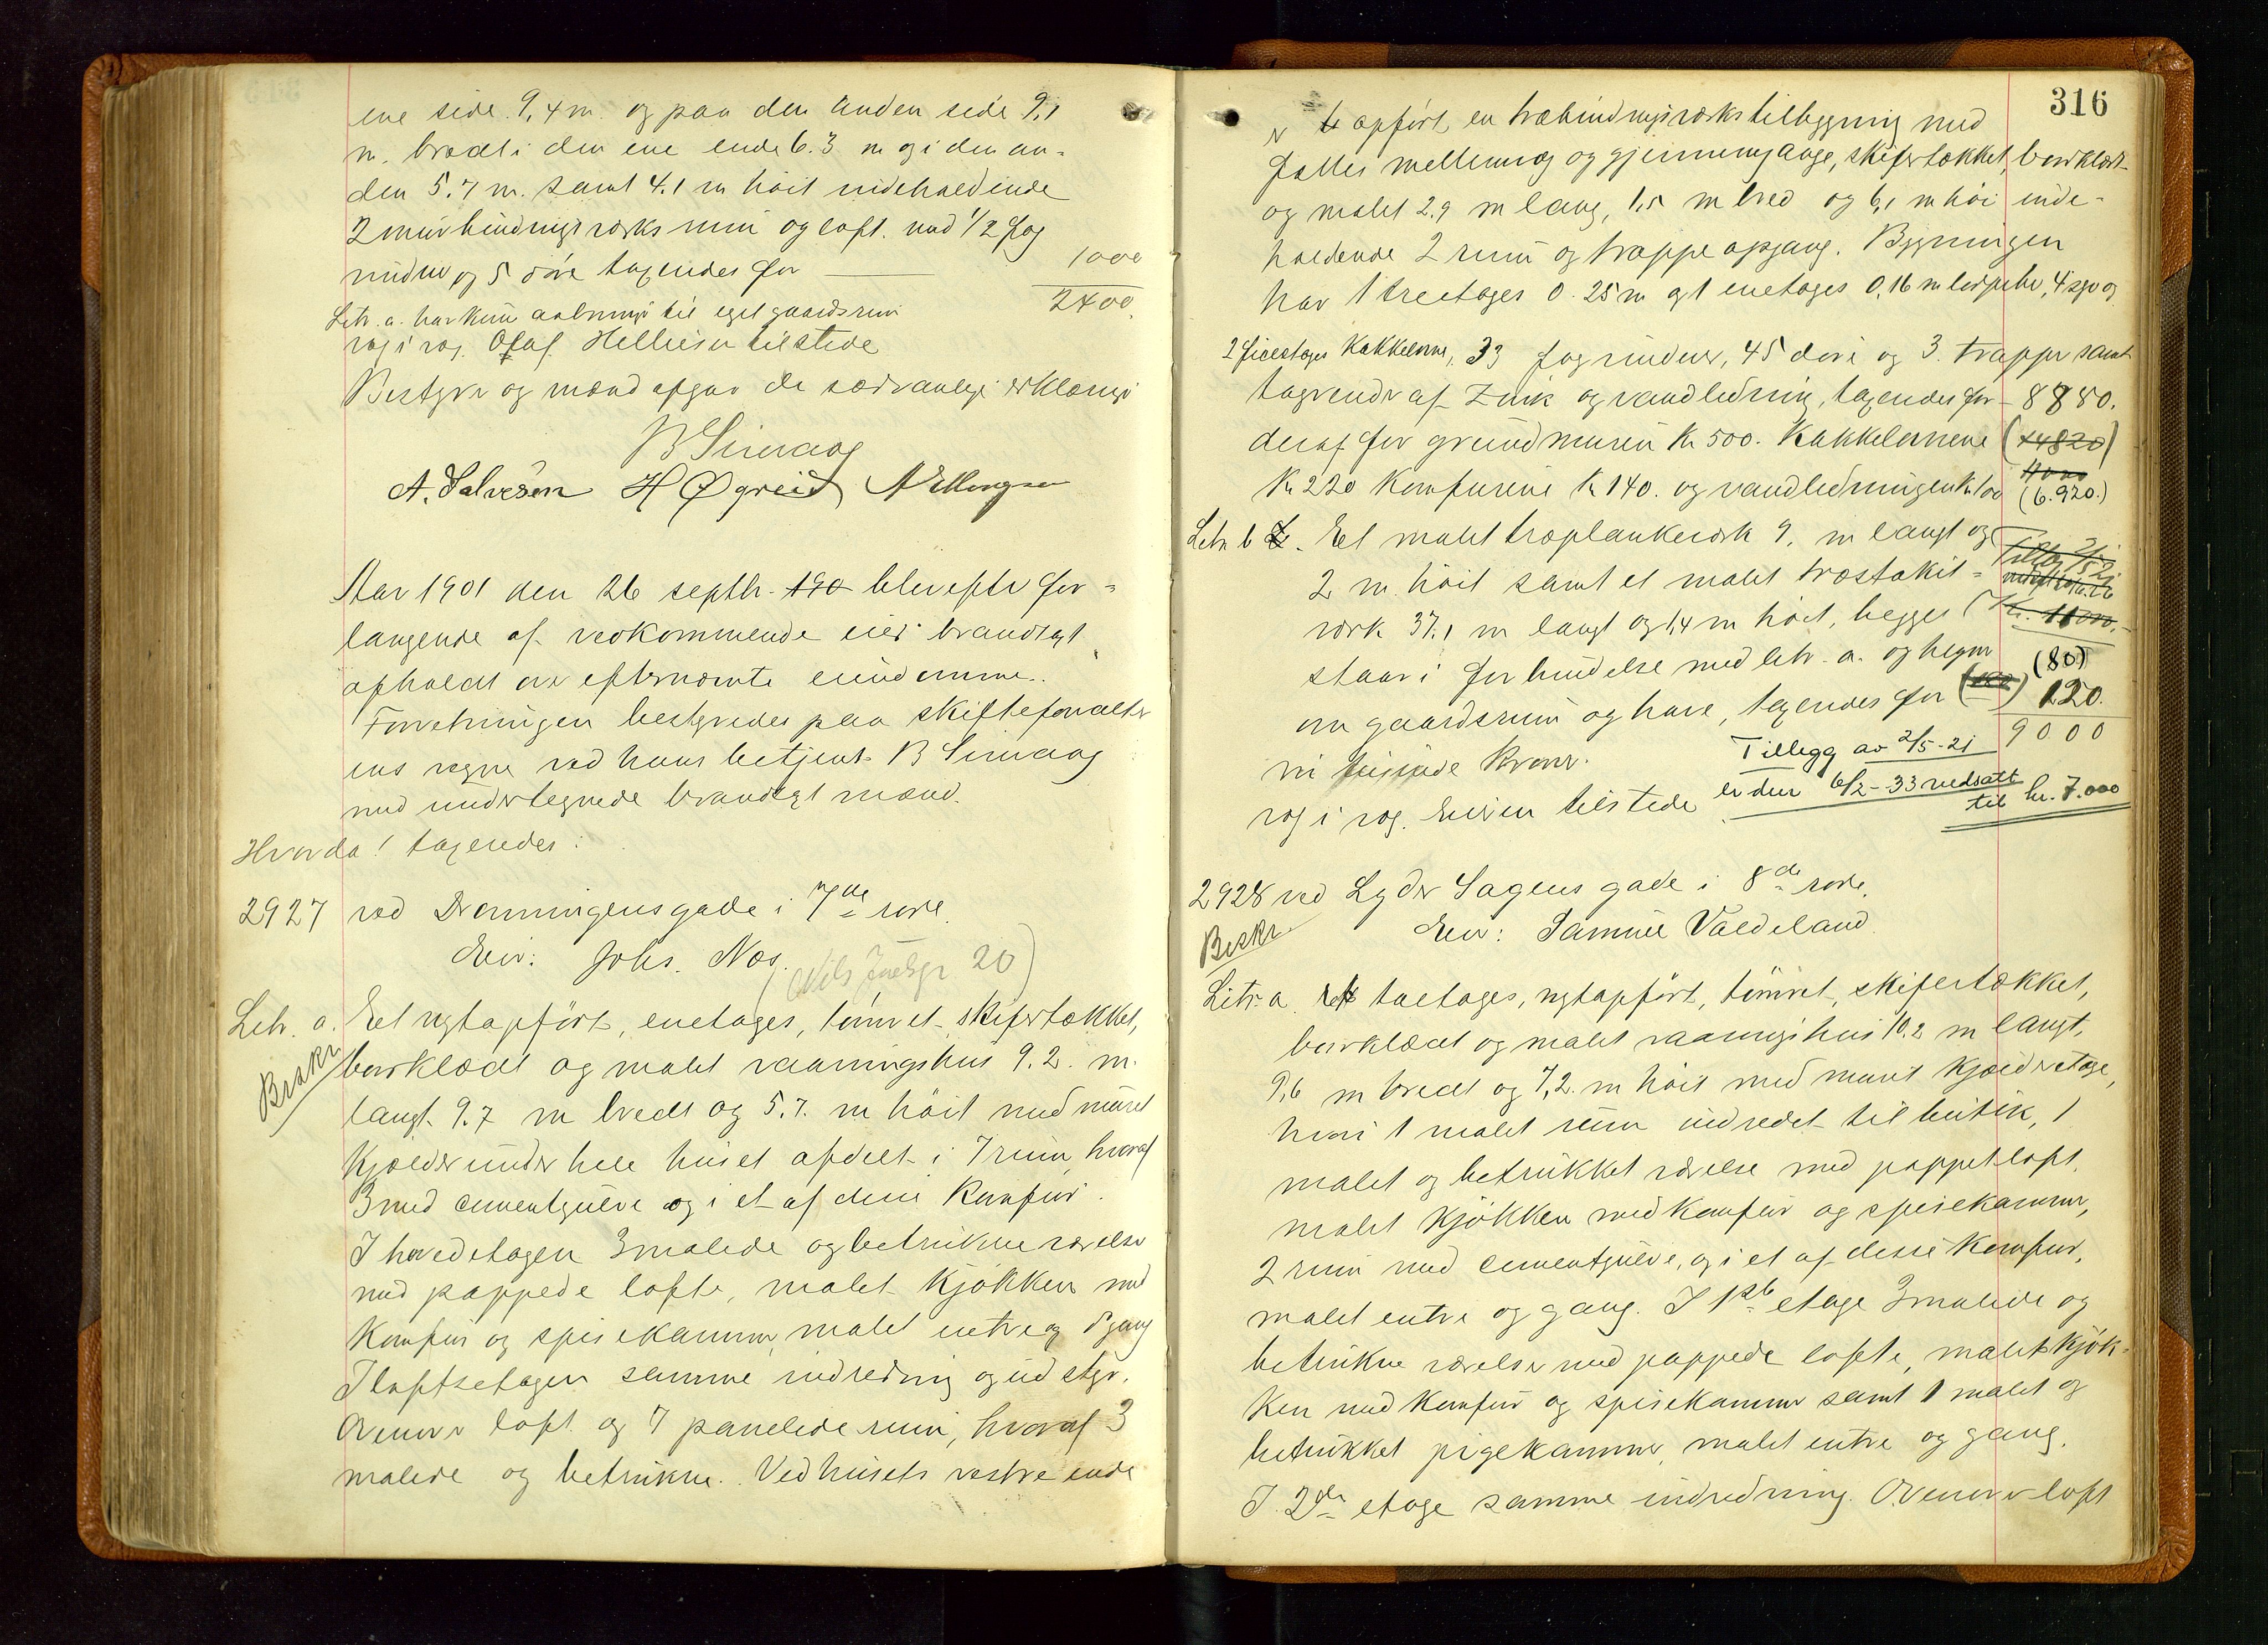 ene side 9,4 m. og paa den anden side 9,1
m. bredt i den ene ende 6.3 m og i den an-
den 5.7 m. samt 4.1 m höit indeholdende
2 murbindingsverks rum og loft. med 1/2 fag
vinduer og 5 döre taxeredes for 1000
2400.
Litr. a. har kun aabning til eget gaardsrum
Olaf Helliesen tilstede
Bestyrer og mænd afgav de sædvanlige erklæring
A. Salvesen H Øgreid
Aar 1901 den 26 septbr. 190 blev efter for-
langende af vedkommende eier brandtaxt
afholdt over efternævnte eiendomme.
Forretningen bestyredes paa skifteforvalter
ens vegne ved hans betjent B
med undertegnede brandtaxtmænd.
Hvorda! taxeredes:
2927 ved Dronningensgade i 7de rode.
Eier: Johs. Næs.
Litr. a. Eet nytopfört, enetages, tömret, skifertækket,
Beskr
bordklædt og malet vaaningshus 9.2. m.
langt 9.7 m bredt og 5.7. m höit med muret
Kjælder under hele huset afdelt i 7 rum, hvoraf
3 med cementgulve og i et af dem Komfur.
I hovedetagen 3 malede og betrukne værelser
med pappede lofte, malet Kjökken med
Komfur og spisekammer, malet entre og gang
I loftsetagen samme indredning og udstyr.
Ovenover loft og 7 panelede rum, hvoraf 3
malede og betrukne. Ved husets vestre ende
316
er opfört en træbindingsverkstilbygning med
fælles mellemvæg og gjennemgange, skifertækket, bordklædt
og malet 2.9 m lang, 1,5 m bred og 6,1 m höi inde-
holdende 2 rum og trappeopgang. Bygningen
har 1 treetages 0.25 m og 1 enetages 0,16 m 4 og
2 Kakkelovne, 33 fag vinduer, 45 döre og 3. trapper samt
tagrender af Zink og vandledning, taxeredes for 8880.
deraf for grundmuren Kr 500. Kakkelovnene (4820)
Kr 220 Komfurene Kr 140. og vandledningen Kr 100 (6.920.)
Litr. b. Et malet træplankeverk 9. m langt og
2 m. höit samt et malet træstakit-
verk 37,1 m langt og 1,4 m höit, begge
staar i forbindelse med litr. a. og hegner (80)
om gaardsrum og have, taxeredes for 120.
Kroner. 9000
Tillegg av 2/5-21
er den 6/2-33 nedsatt
til kr. 7.000
Eieren tilstede
2928 ved Lyder Sagens gade i 8de rode.
Beskr.
Eier: Samuel Valdeland
Litr. a. tretages, nytopfört, tömret, skifertækket,
bordklædt og malet vaaningshus 10.2 m langt,
9,6 m bredt og 7,2. m höit med muret Kjælderetage,
hvori 1 malet rum indredet til butik, 1
malet og betrukket værelse med pappet loft,
malet Kjökken med Komfur og spisekammer,
2 rum med cementgulve, og i et af disse Komfur,
malet entre og gang. I 1ste etage 3 malede og
betrukne værelser med pappede lofte, malet Kjök-
ken med Komfur og spisekammer samt 1 malet og
betrukket pigekammer, malet entre og gang.
I 2den etage samme indredning. Ovenover loft